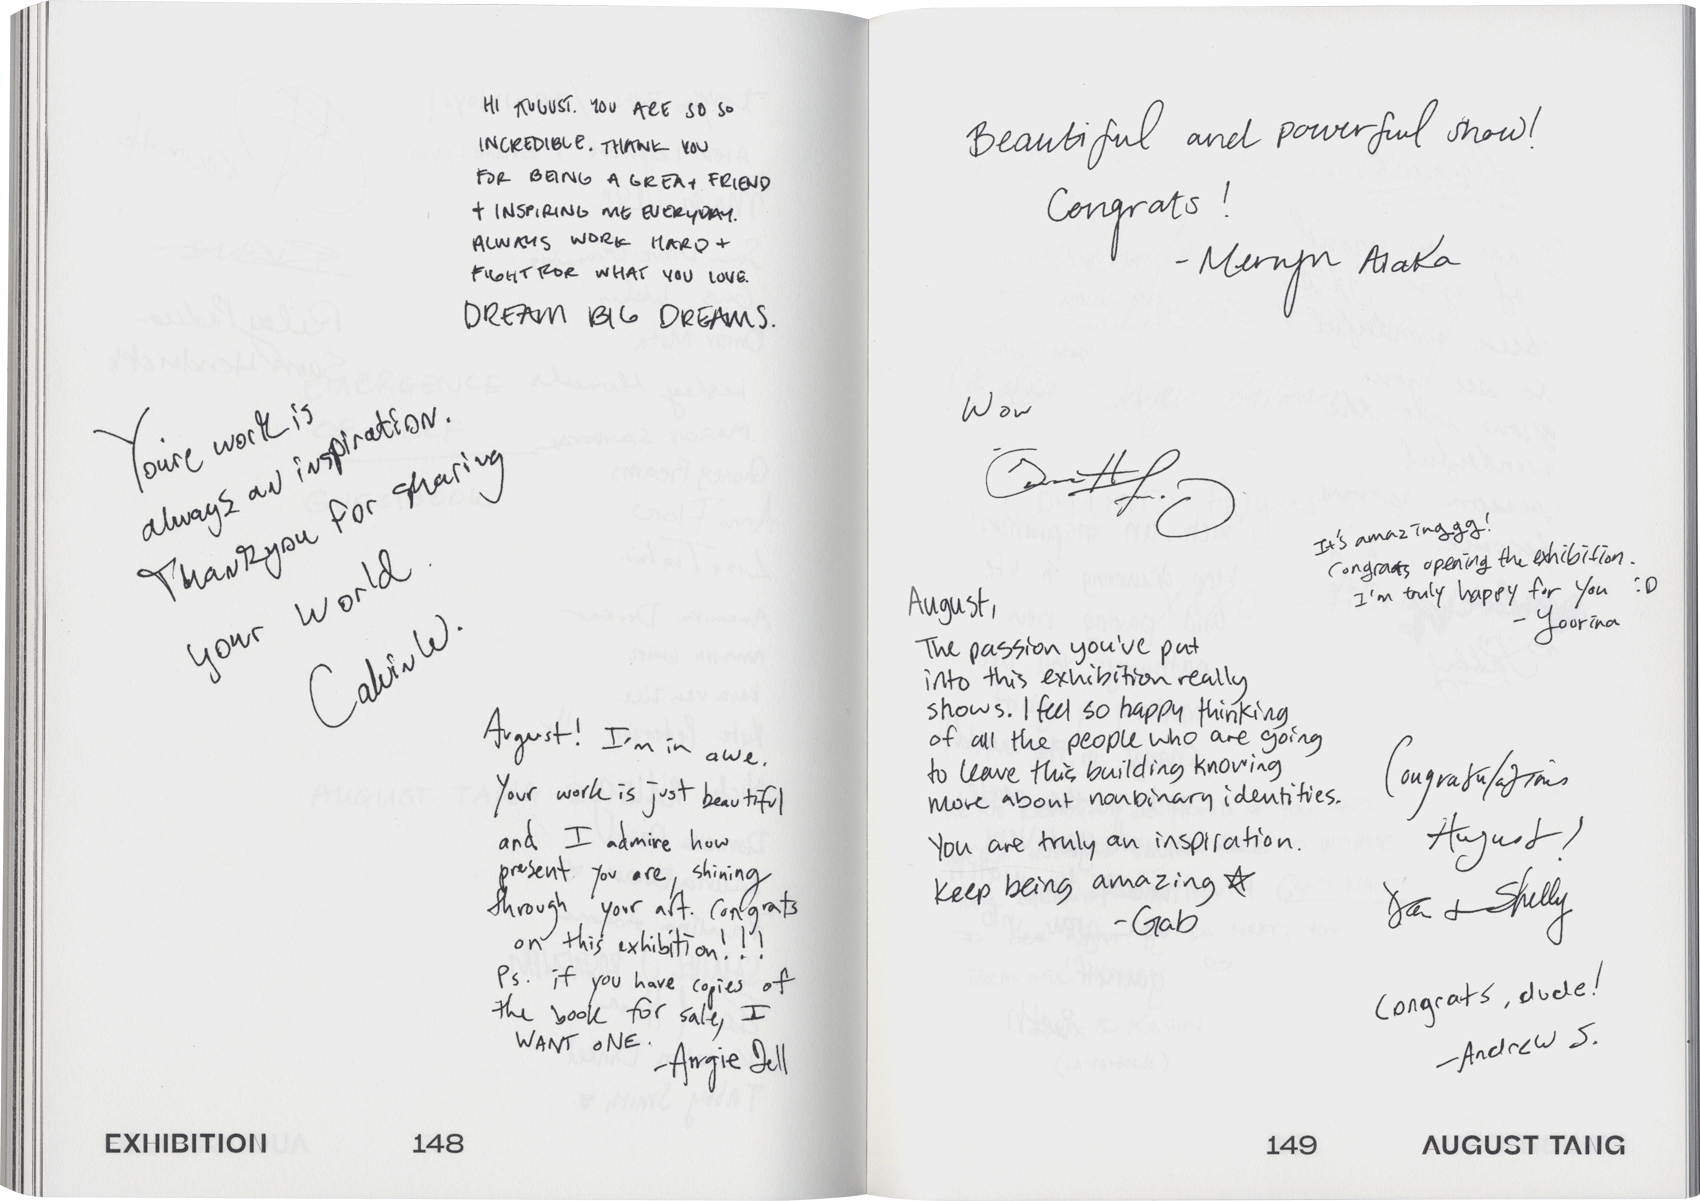 HI AUGUST. YOU ARE SO SO
INCREDIBLE. THANK YOU
FOR BEING A GREAT FRIEND
+ INSPIRING ME EVERYDAY.
ALWAYS WORK HARD +
FIGHT FOR WHAT YOU LOVE.
DREAM BIG DREAMS.
You're work is
always an inspiration.
Thankyou for sharing
your world.
Calvin W.
August! I'm in awe.
Your work is just beautiful
and I admire how
present you are, shining
through your art. Congrats
on this exhibition!!!
Ps. if you have copies of
the book for sale, I
WANT ONE.
-Angie Dell
EXHIBITION 148
Beautiful and powerful show!
Congrats!
- Mervyn
Wow
It's amazinggg!
Congrats opening the exhibition.
I'm truly happy for you :D
- Yoorina
August,
The passion you've put
into this exhibition really
shows. I feel so happy thinking
of all the people who are going
to leave this building knowing
more about nonbinary identities.
You are truly an inspiration.
Keep being amazing ☆
-Gab
Congratulations
August!
+ Shelly
Congrats, dude!
-Andrew S.
149 AUGUST TANG